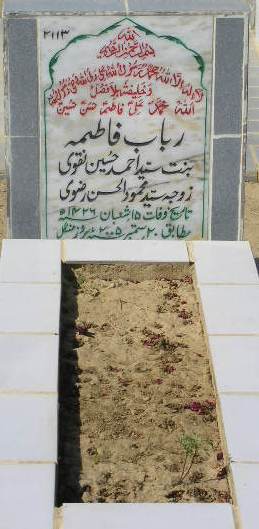 ۲۱۱۳
اللہ
بسم اللہ الرحمن الرحیم
لا الہ الا اللہ محمد رسول اللہ علی ولی اللہ وصی رسول اللہ
وخلیفتہ بلا فصل
اللہ محمد علی فاطمہ حسن حسین
رباب فاطمہ
بنت سید احمد حسین نقوی
زوجہ سید محمود الحسن رضوی
تاریخ وفات ۱۵ شعبان ۱۴۲۶ھ
مطابق ۲۰ ستمبر ۲۰۰۵ء بروز منگل